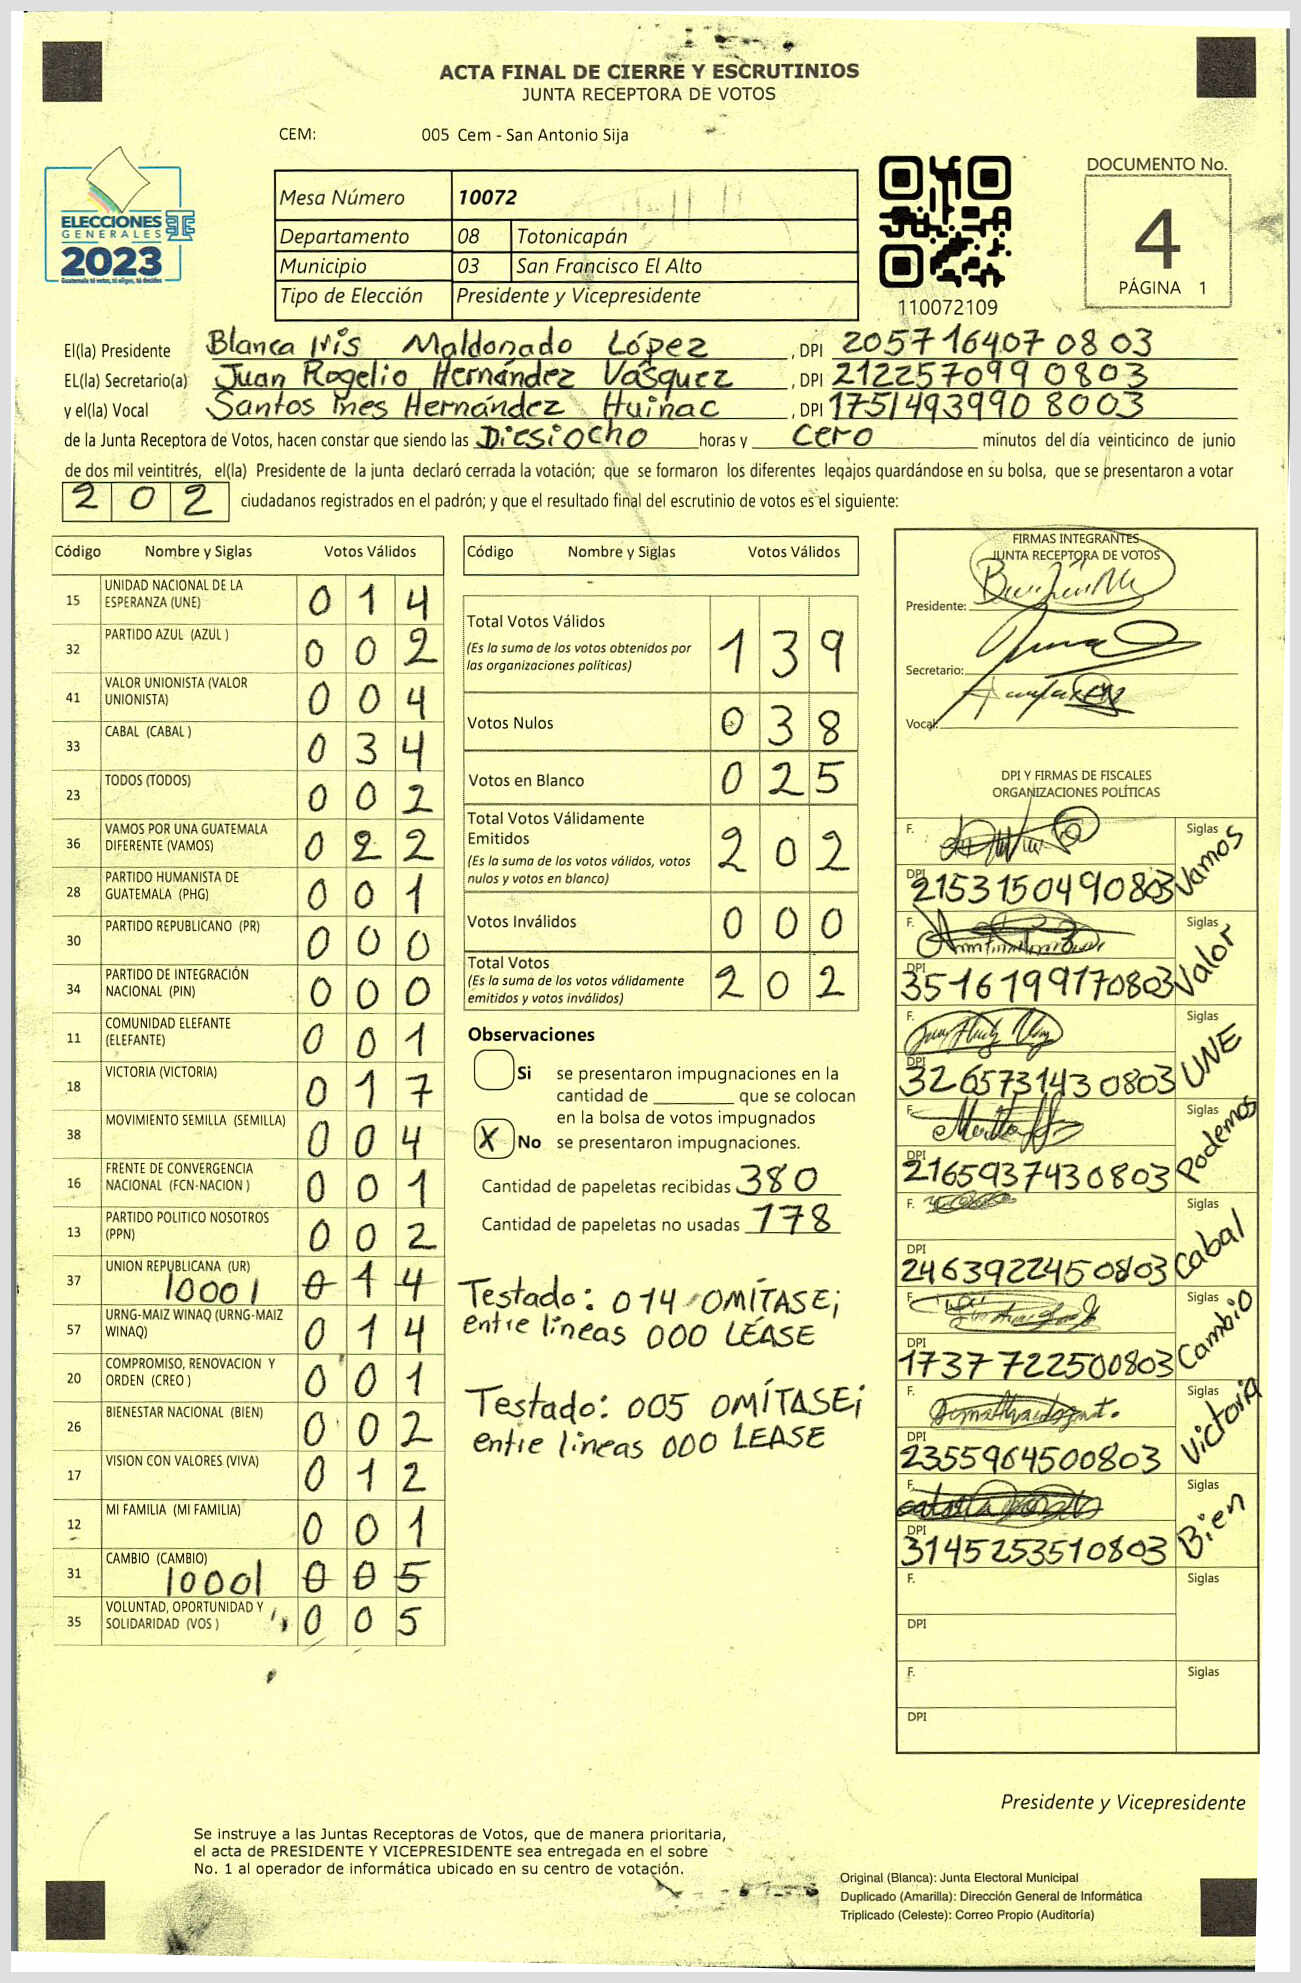 ACTA FINAL DE CIERRE Y ESCRUTINIOS
JUNTA RECEPTORA DE VOTOS
CEM: 005 Cem - San Antonio Sija
ELECCIONES
GENERALES
2023
Guatemala: tú votas, tú eliges, tú decides
Mesa Número 10072
Departamento 08 Totonicapán
Municipio 03 San Francisco El Alto
Tipo de Elección Presidente y Vicepresidente
110072109
DOCUMENTO No.
4
PÁGINA 1
El(la) Presidente Blanca Iris Maldonado López , DPI 2057164070803
EL(la) Secretario(a) Juan Rogelio Hernández Vásquez , DPI 2122570990803
y el(la) Vocal Santos Ines Hernández Huinac , DPI 17514939908003
de la Junta Receptora de Votos, hacen constar que siendo las Diesiocho horas y cero minutos del día veinticinco de junio
de dos mil veintitrés, el(la) Presidente de la junta declaró cerrada la votación; que se formaron los diferentes legajos guardándose en su bolsa, que se presentaron a votar
202 ciudadanos registrados en el padrón; y que el resultado final del escrutinio de votos es el siguiente:
Código Nombre y Siglas Votos Válidos
15 UNIDAD NACIONAL DE LA ESPERANZA (UNE) 014
32 PARTIDO AZUL (AZUL ) 002
41 VALOR UNIONISTA (VALOR UNIONISTA) 004
33 CABAL (CABAL ) 034
23 TODOS (TODOS) 002
36 VAMOS POR UNA GUATEMALA DIFERENTE (VAMOS) 022
28 PARTIDO HUMANISTA DE GUATEMALA (PHG) 001
30 PARTIDO REPUBLICANO (PR) 000
34 PARTIDO DE INTEGRACIÓN NACIONAL (PIN) 000
11 COMUNIDAD ELEFANTE (ELEFANTE) 001
18 VICTORIA (VICTORIA) 017
38 MOVIMIENTO SEMILLA (SEMILLA) 004
16 FRENTE DE CONVERGENCIA NACIONAL (FCN-NACION ) 001
13 PARTIDO POLITICO NOSOTROS (PPN) 002
37 UNION REPUBLICANA (UR) |000| 014
57 URNG-MAIZ WINAQ (URNG-MAIZ WINAQ) 014
20 COMPROMISO, RENOVACION Y ORDEN (CREO ) 001
26 BIENESTAR NACIONAL (BIEN) 002
17 VISION CON VALORES (VIVA) 012
12 MI FAMILIA (MI FAMILIA) 001
31 CAMBIO (CAMBIO) |000| 005
35 VOLUNTAD, OPORTUNIDAD Y SOLIDARIDAD (VOS ) 005
Código Nombre y Siglas Votos Válidos
Total Votos Válidos 139
(Es la suma de los votos obtenidos por
las organizaciones políticas)
Votos Nulos 038
Votos en Blanco 025
Total Votos Válidamente
Emitidos 202
(Es la suma de los votos válidos, votos
nulos y votos en blanco)
Votos Inválidos 000
Total Votos 202
(Es la suma de los votos válidamente
emitidos y votos inválidos)
Observaciones
Si se presentaron impugnaciones en la
cantidad de ________ que se colocan
en la bolsa de votos impugnados
X No se presentaron impugnaciones.
Cantidad de papeletas recibidas 380
Cantidad de papeletas no usadas 178
Testado: 014 OMÍTASE;
entre líneas 000 LÉASE
Testado: 005 OMÍTASE;
entre líneas 000 LEASE
FIRMAS INTEGRANTES
JUNTA RECEPTORA DE VOTOS
Presidente:
Secretario:
Vocal:
DPI Y FIRMAS DE FISCALES
ORGANIZACIONES POLÍTICAS
F. Siglas Vamos
DPI 2153150490803
F. Siglas Valor
DPI 3516199170803
F. Siglas UNE
DPI 3265731430803
F. Siglas Podemos
DPI 2165937430803
F. Siglas Cabal
DPI 2463922450803
F. Siglas Cambio
DPI 1737722500803
F. Siglas Victoria
DPI 2355964500803
F. Siglas Bien
DPI 3145253510803
F. Siglas
DPI
F. Siglas
DPI
Presidente y Vicepresidente
Se instruye a las Juntas Receptoras de Votos, que de manera prioritaria,
el acta de PRESIDENTE Y VICEPRESIDENTE sea entregada en el sobre
No. 1 al operador de informática ubicado en su centro de votación.
Original (Blanca): Junta Electoral Municipal
Duplicado (Amarilla): Dirección General de Informática
Triplicado (Celeste): Correo Propio (Auditoría)